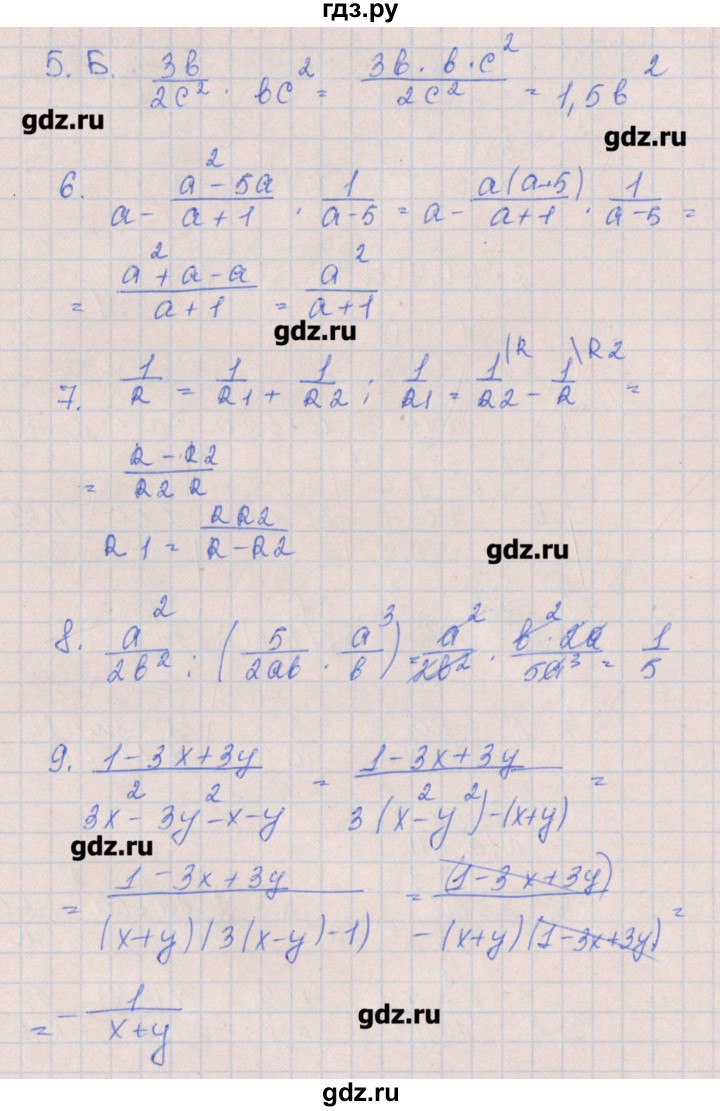 гдз.ру
5. Б. 3в/2с² · вс² = 3в · в · с²/2с² = 1,5в²
gdz.ru
gdz.ru
6. а - а² - 5а/а + 1 · 1/а - 5 = а - а(а-5)/а+1 · 1/а - 5 =
= а² + а - а/а + 1 = а²/а + 1
gdz.ru
7. 1/R = 1/R1 + 1/R2 ; 1/R1 = 1/R2 \R - 1/R \R2 =
= R - R2/R2 R
R1 = RR2/R - R2
gdz.ru
8. а²/2в² : (5/2ав · а³/в) = а²/2в² · в² · 2а/5а³ = 1/5
9. 1 - 3x + 3y/3x² - 3y² - x - y = 1 - 3x + 3y/3(x² - y²) - (x+y) =
gdz.ru
= 1 - 3x + 3y/(x+y)(3(x-y) - 1) = (1 - 3x + 3y)/-(x+y)(1 - 3x + 3y) =
= - 1/x + y
gdz.ru
gdz.ru